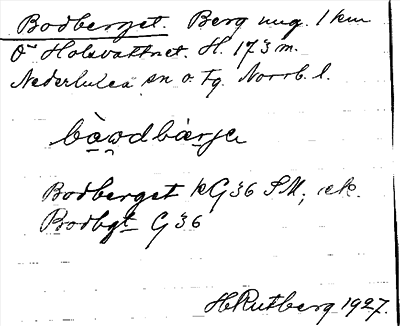 Bodberget. Berg ung. 1 km
Ö Holsvattnet. H. 173 m.
Nederluleå sn o. tg. Norrb. l.
Bodberget kG36 SM; ek.
Brodbgt G 36
HRutberg 1927.